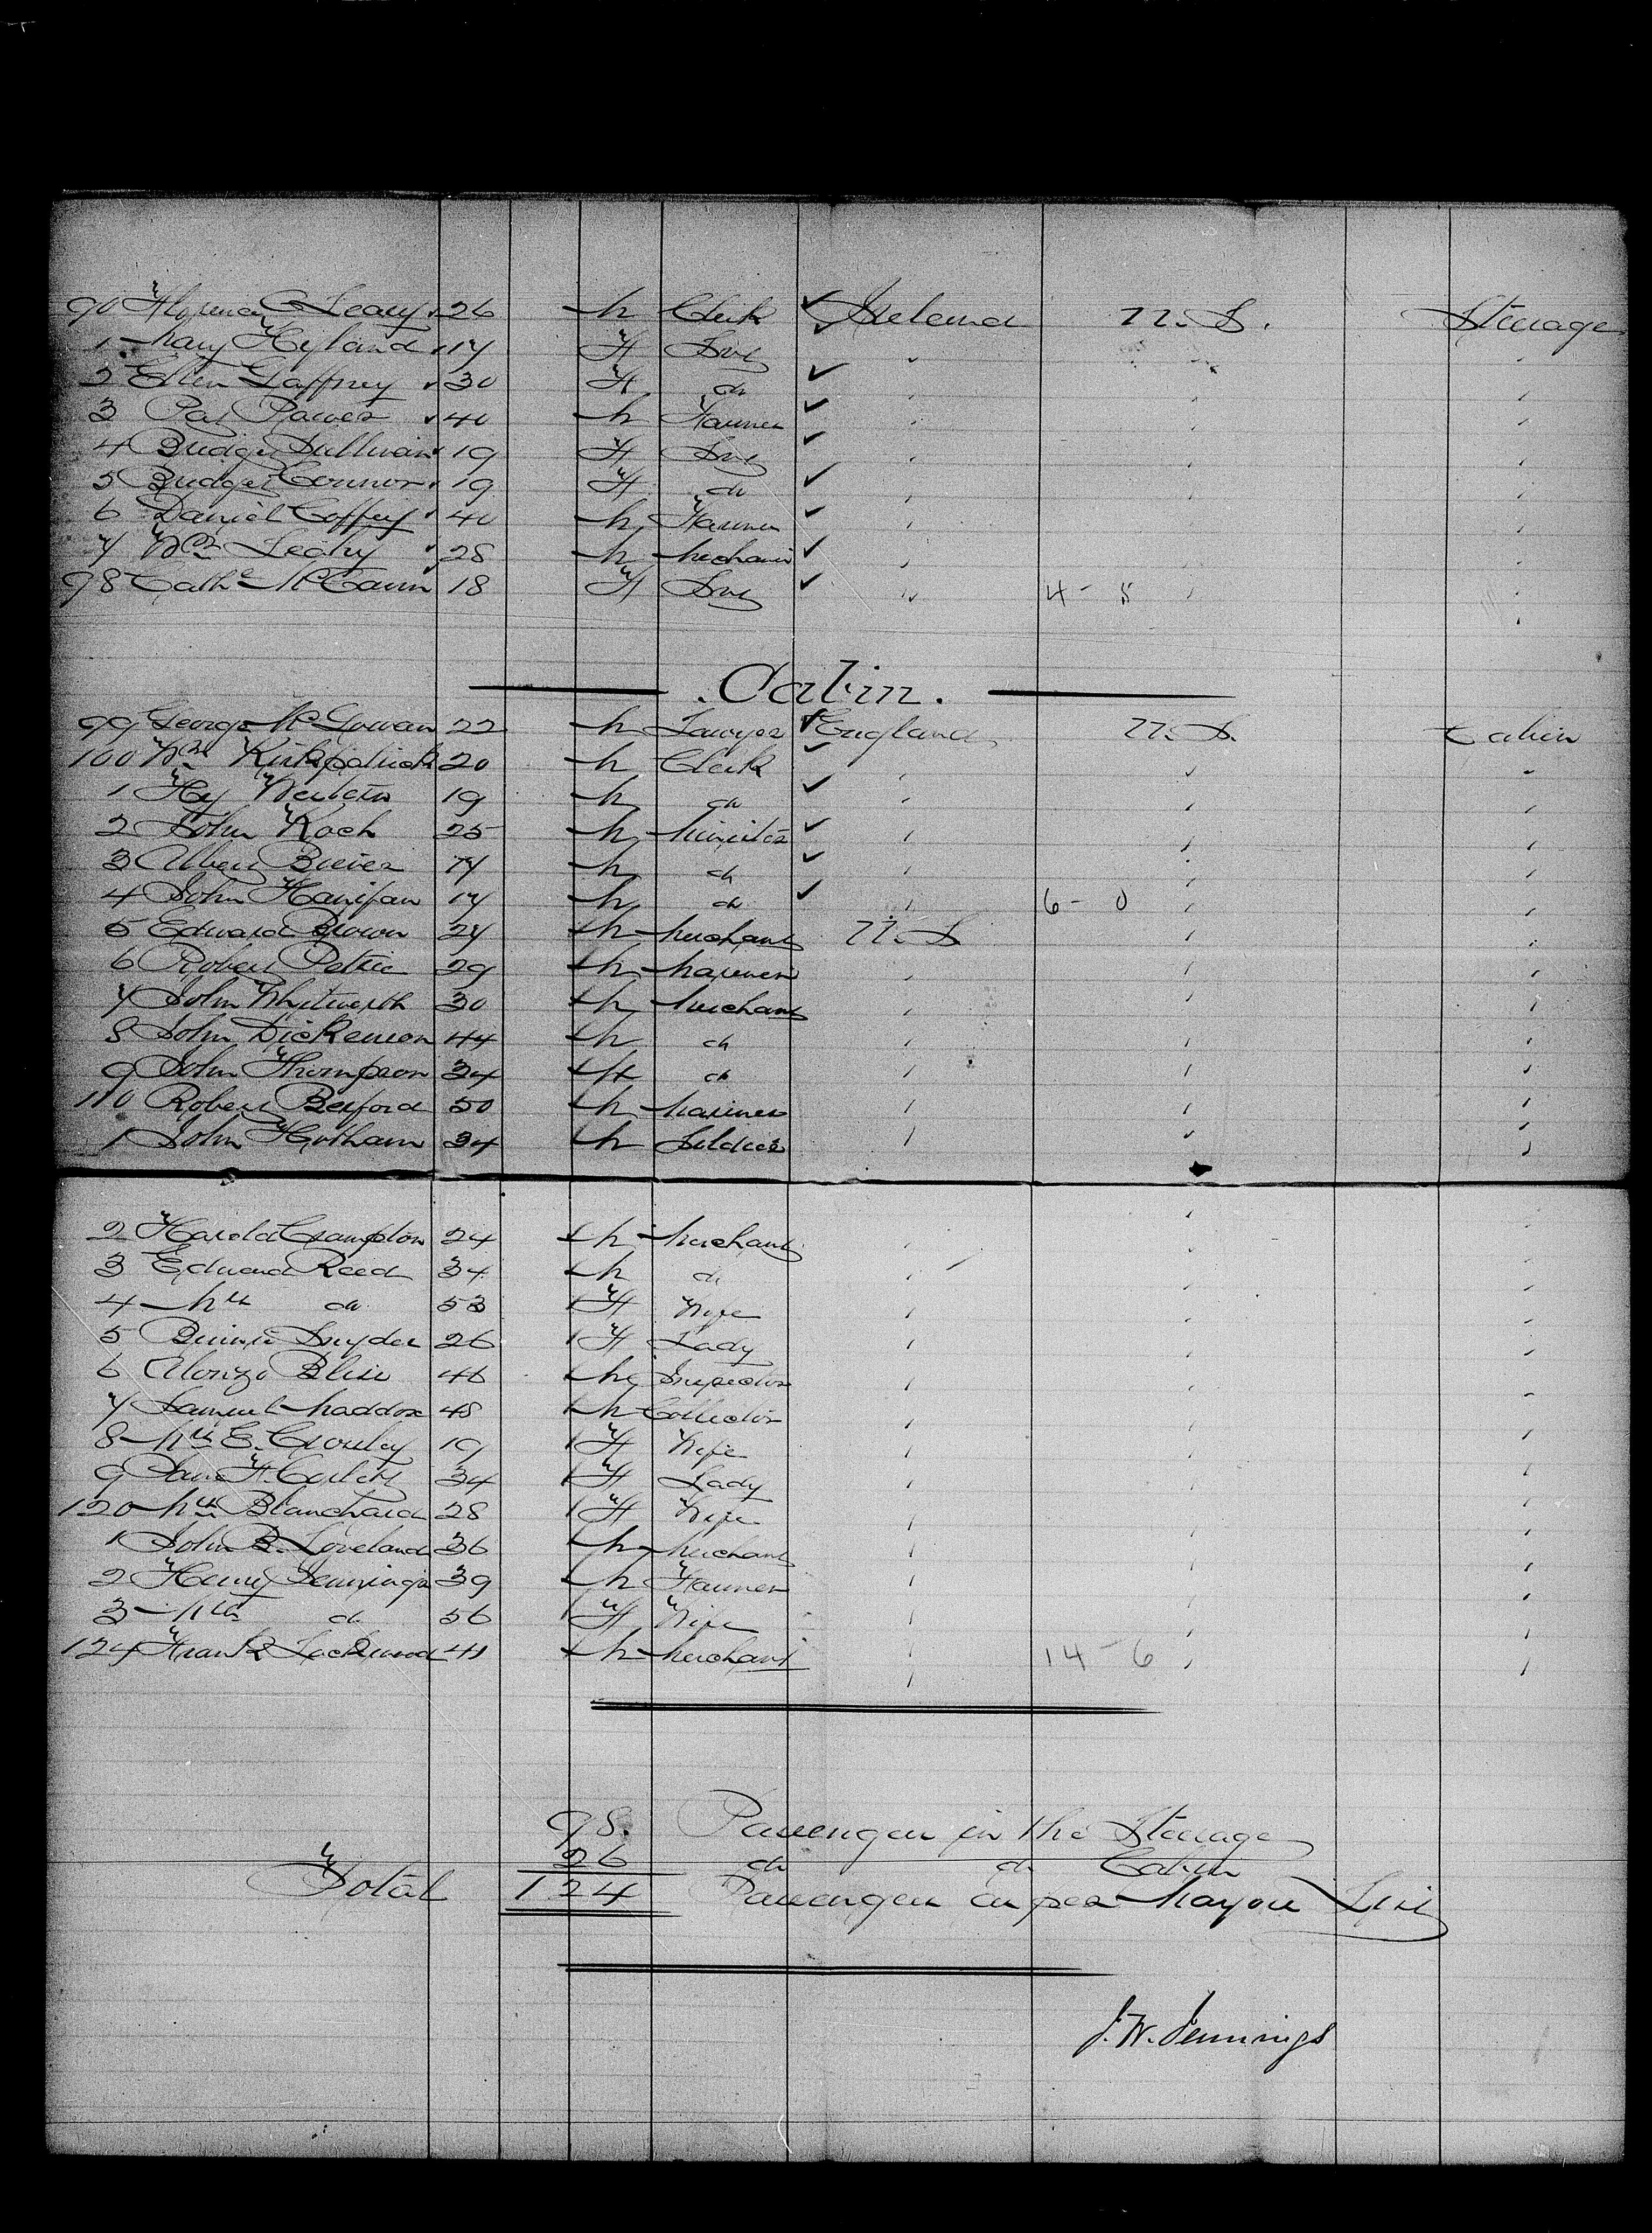 90 Florence O Leary 26 M Clerk ✓ Ireland U.S. Steerage
1 Mary Hyland 17 F Srvt ✓ " " "
2 Ellen Gaffney 30 F do ✓ " " "
3 Pat Power 40 M Farmer ✓ " " "
4 Bridget Sullivan 19 F Srvt ✓ " " "
5 Bridget Connor 19 F do ✓ " " "
6 Daniel Coffey 40 M Farmer ✓ " " "
7 Wm Leahy 28 M Mechanic ✓ " " "
98 Cathe McCann 18 F Srvt ✓ " 4 - 5 " "
Cabin.
99 George McGowan 22 M Lawyer ✓ England U.S. Cabin
100 Wm Kirkpatrick 20 M Clerk ✓ " " "
1 Hy 19 M do ✓ " " "
2 John Koch 25 M Minister ✓ " " "
3 Albert 17 M do ✓ " " "
4 John Hanifan 17 M do ✓ " 6 - 0 " "
5 Edward Brown 27 M Merchant U.S. " "
6 Robert Petrie 29 M Mariner " " "
7 John Whitworth 30 M Merchant " " "
8 John Dickenson 44 M do " " "
9 John Thompson 34 M do " " "
110 Robert Bexford 50 M Mariner " " "
1 John Hotham 34 M Soldier " " "
2 Harold Crampton 24 M Merchant " " "
3 Edward Reed 34 M do " " "
4 Mrs do 53 F Wife " " "
5 Snyder 26 F Lady " " "
6 Alonzo Bliss 46 M Inspector " " "
7 Samuel Maddox 48 M Collector " " "
8 Mrs E. Crowley 19 F Wife " " "
9 H. 34 F Lady " " "
120 Mrs Blanchard 28 F Wife " " "
1 John B. Loveland 36 M Merchant " " "
2 Henry Jennings 39 M Farmer " " "
3 Mrs do 56 F Wife " " "
124 Frank Lockwood 41 M Merchant " 14 - 6 " "
98. Passengers in the Steerage
26 do do Cabin
Total 124 Passengers as per Mayors List
J. W. Jennings